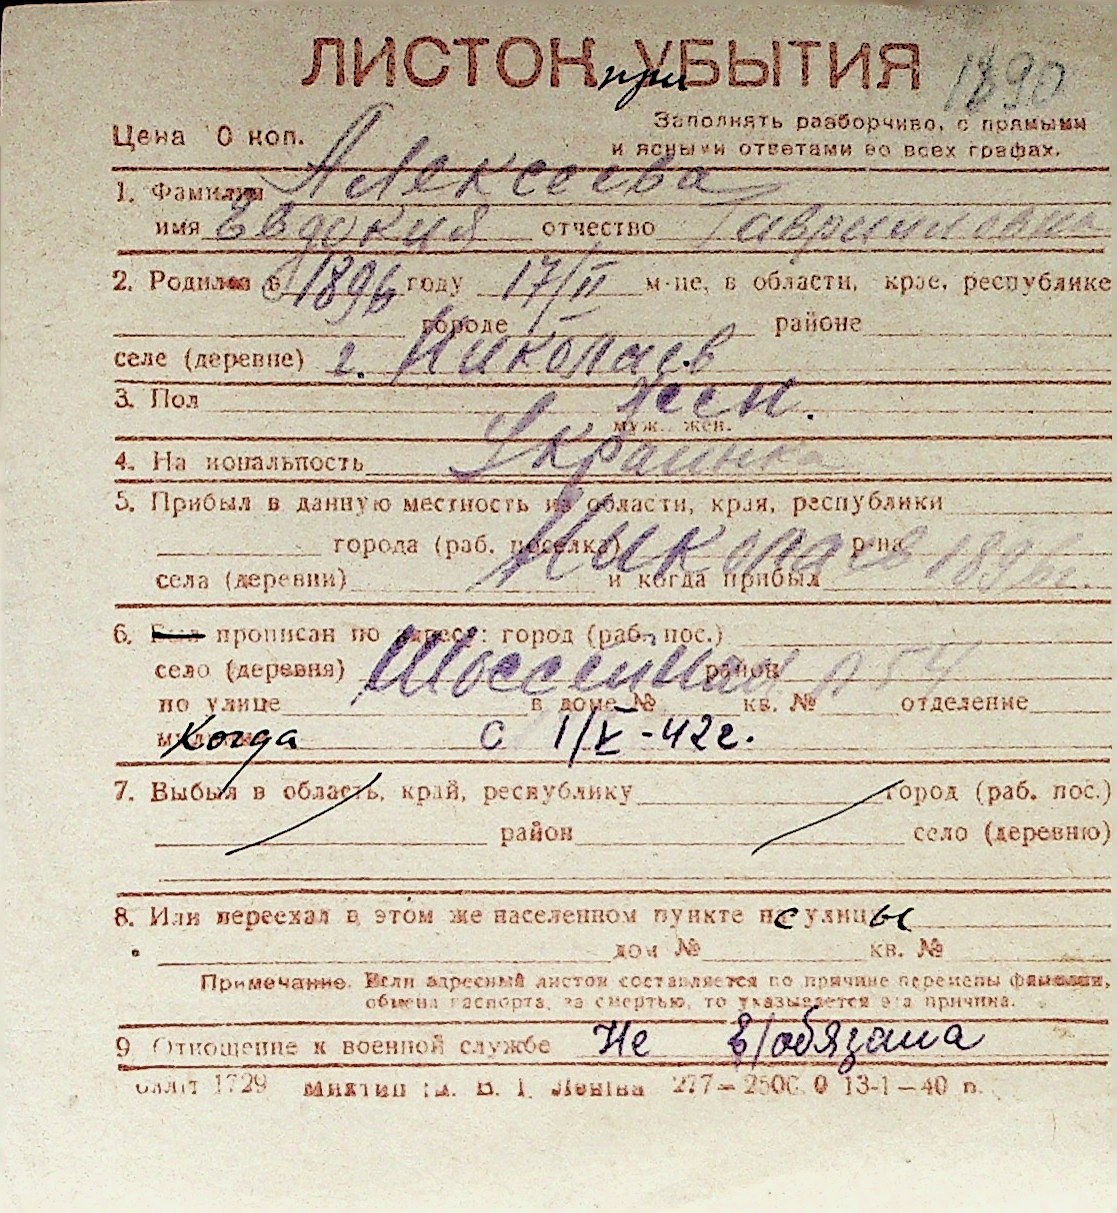 ЛИСТОК при УБЫТИЯ 1890
Цена 10 коп. Заполнять разборчиво, с прямыми
и ясными ответами во всех графах.
1. Фамилия Алексеева
имя Евдокия отчество Гавриловна
2. Родился в 1896 году 17/II м-це, в области, крае, республике
городе районе
селе (деревне) г. Николаев
3. Пол жен.
муж. жен.
4. Национальность Украинка
5. Прибыл в данную местность из области, края, республики
города (раб. поселка) Николаев р-на
села (деревни) и когда прибыл 1896 г.
6. Был прописан по адресу: город (раб. пос.)
село (деревня) Шоссейная район 54
по улице в доме № кв. № отделение
Когда С 1/V-42г.
7. Выбыл в область, край, республику город (раб. пос.)
район село (деревню)
8. Или переехал в этом же населенном пункте с улицы
дом № кв. №
Примечание. Если адресный листок составляется по причине перемены фамилии,
обмена паспорта, за смертью, то указывается эта причина.
9 Отношение к военной службе Не в/обязана
1729 Леніна 277—2500.0 13-1—40 п.